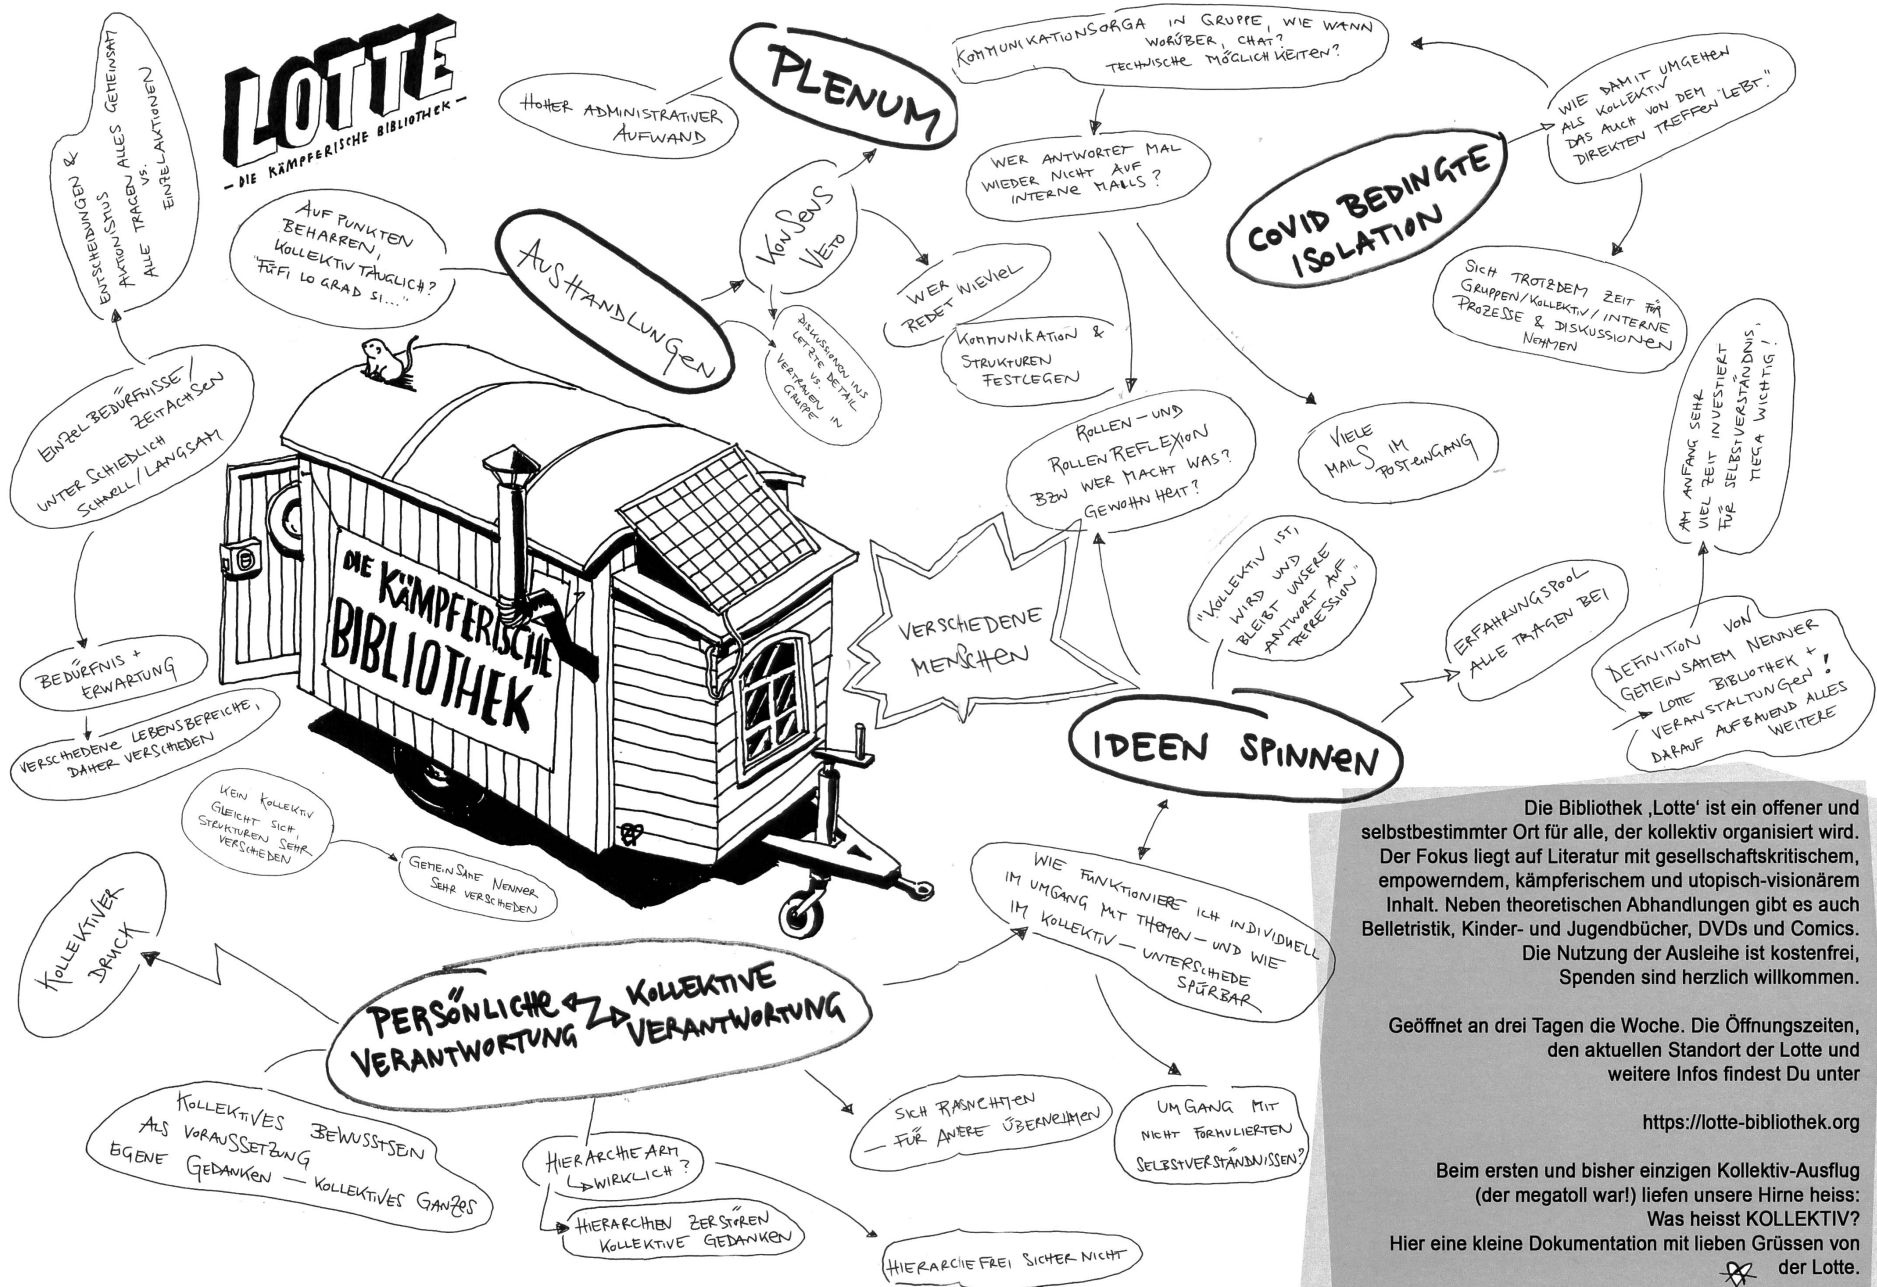 LOTTE
- DIE KÄMPFERISCHE BIBLIOTHEK -
ENTSCHEIDUNGEN &
AKTIONISMUS
ALLE TRAGEN ALLES GEMEINSAM
VS.
EINZELAKTIONEN
HOHER ADMINISTRATIVER
AUFWAND
PLENUM
KOMMUNIKATIONSORGA IN GRUPPE, WIE WANN
WORÜBER, CHAT?
TECHNISCHE MÖGLICHKEITEN?
WIE DAMIT UMGEHEN
ALS KOLLEKTIV
DAS AUCH VON DEM
DIREKTEN TREFFEN "LEBT."
WER ANTWORTET MAL
WIEDER NICHT AUF
INTERNE MAILS?
COVID BEDINGTE
ISOLATION
AUF PUNKTEN
BEHARREN,
KOLLEKTIV TAUGLICH?
"FÜFI LO GRAD SI..."
AUSHANDLUNGEN
KONSENS
VETO
WER
REDET WIEVIEL
DISKUSSIONEN INS
LETZTE DETAIL
VS.
VERTRAUEN IN
GRUPPE
KOMMUNIKATION &
STRUKTUREN
FESTLEGEN
SICH TROTZDEM ZEIT FÜR
GRUPPEN/KOLLEKTIV/INTERNE
PROZESSE & DISKUSSIONEN
NEHMEN
AM ANFANG SEHR
VIEL ZEIT INVESTIERT
FÜR SELBSTVERSTÄNDNIS.
MEGA WICHTIG!
EINZELBEDÜRFNISSE/
ZEITACHSEN
UNTERSCHIEDLICH
SCHNELL/LANGSAM
ROLLEN-UND
ROLLENREFLEXION
BZW WER MACHT WAS?
GEWOHNHEIT?
VIELE
MAILS IM
POSTEINGANG
DIE KÄMPFERISCHE
BIBLIOTHEK
VERSCHIEDENE
MENSCHEN
"KOLLEKTIV IST,
WIRD UND
BLEIBT UNSERE
ANTWORT AUF
REPRESSION"
ERFAHRUNGSPOOL
ALLE TRAGEN BEI
DEFINITION VON
GEMEINSAMEM NENNER
LOTTE BIBLIOTHEK +
VERANSTALTUNGEN!
DARAUF AUFBAUEND ALLES
WEITERE
BEDÜRFNIS +
ERWARTUNG
VERSCHIEDENE LEBENSBEREICHE,
DAHER VERSCHIEDEN
IDEEN SPINNEN
KEIN KOLLEKTIV
GLEICHT SICH,
STRUKTUREN SEHR
VERSCHIEDEN
GEMEINSAME NENNER
SEHR VERSCHIEDEN
KOLLEKTIVER
DRUCK
WIE FUNKTIONIERE ICH INDIVIDUELL
IM UMGANG MIT THEMEN - UND WIE
IM KOLLEKTIV - UNTERSCHIEDE
SPÜRBAR
PERSÖNLICHE
VERANTWORTUNG
KOLLEKTIVE
VERANTWORTUNG
KOLLEKTIVES BEWUSSTSEIN
ALS VORAUSSETZUNG
EGENE GEDANKEN — KOLLEKTIVES GANZES
HIERARCHIEARM
WIRKLICH?
HIERARCHIEN ZERSTÖREN
KOLLEKTIVE GEDANKEN
HIERARCIEFREI SICHER NICHT
SICH RASNEHMEN
— FÜR ANERE ÜBERNEHMEN
UMGANG MIT
NICHT FORMULIERTEN
SELBSTVERSTÄNDNISSEN?
Die Bibliothek ‚Lotte' ist ein offener und
selbstbestimmter Ort für alle, der kollektiv organisiert wird.
Der Fokus liegt auf Literatur mit gesellschaftskritischem,
empowerndem, kämpferischem und utopisch-visionärem
Inhalt. Neben theoretischen Abhandlungen gibt es auch
Belletristik, Kinder- und Jugendbücher, DVDs und Comics.
Die Nutzung der Ausleihe ist kostenfrei,
Spenden sind herzlich willkommen.
Geöffnet an drei Tagen die Woche. Die Öffnungszeiten,
den aktuellen Standort der Lotte und
weitere Infos findest Du unter
https://lotte-bibliothek.org
Beim ersten und bisher einzigen Kollektiv-Ausflug
(der megatoll war!) liefen unsere Hirne heiss:
Was heisst KOLLEKTIV?
Hier eine kleine Dokumentation mit lieben Grüssen von
der Lotte.